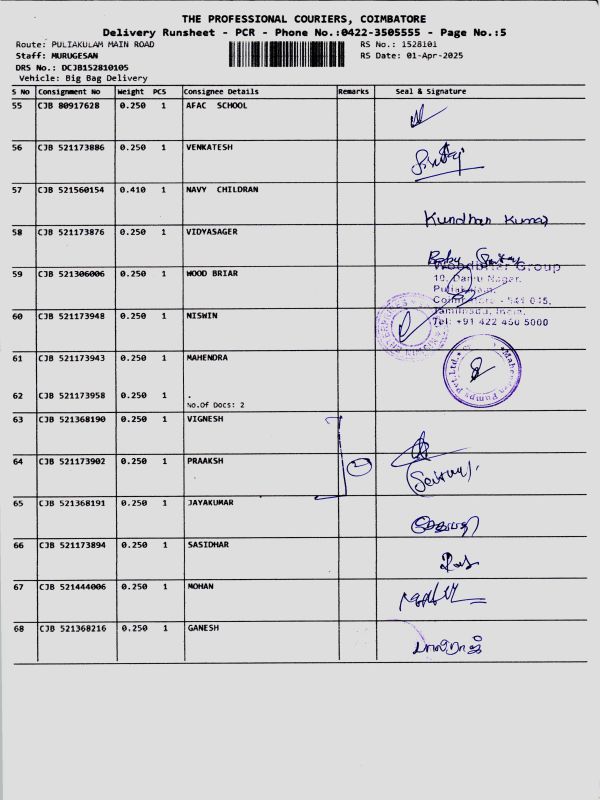 THE PROFESSIONAL COURIERS, COIMBATORE
Delivery Runsheet - PCR - Phone No.:0422-3505555 - Page No.:5
Route: PULIAKULAM MAIN ROAD RS No.: 1528101
Staff: MURUGESAN RS Date: 01-Apr-2025
DRS No.: DCJB152810105
Vehicle: Big Bag Delivery
S No Consignment No Weight PCS Consignee Details Remarks Seal & Signature
55 CJB 80917628 0.250 1 AFAC SCHOOL
56 CJB 521173886 0.250 1 VENKATESH
57 CJB 521560154 0.410 1 NAVY CHILDRAN
Kundhan Kumar
58 CJB 521173876 0.250 1 VIDYASAGER
Baby
59 CJB 521306006 0.250 1 WOOD BRIAR
Woodbriar Group
Puliakulam,
Coimbatore - 641 045,
Tamilnadu, India.
Tel: +91 422 450 5000
60 CJB 521173948 0.250 1 NISWIN
61 CJB 521173943 0.250 1 MAHENDRA
Mahendra Pumps Pvt Ltd.
62 CJB 521173958 0.250 1 .
No.Of Docs: 2
63 CJB 521368190 0.250 1 VIGNESH
64 CJB 521173902 0.250 1 PRAAKSH
2
65 CJB 521368191 0.250 1 JAYAKUMAR
66 CJB 521173894 0.250 1 SASIDHAR
67 CJB 521444006 0.250 1 MOHAN
68 CJB 521368216 0.250 1 GANESH